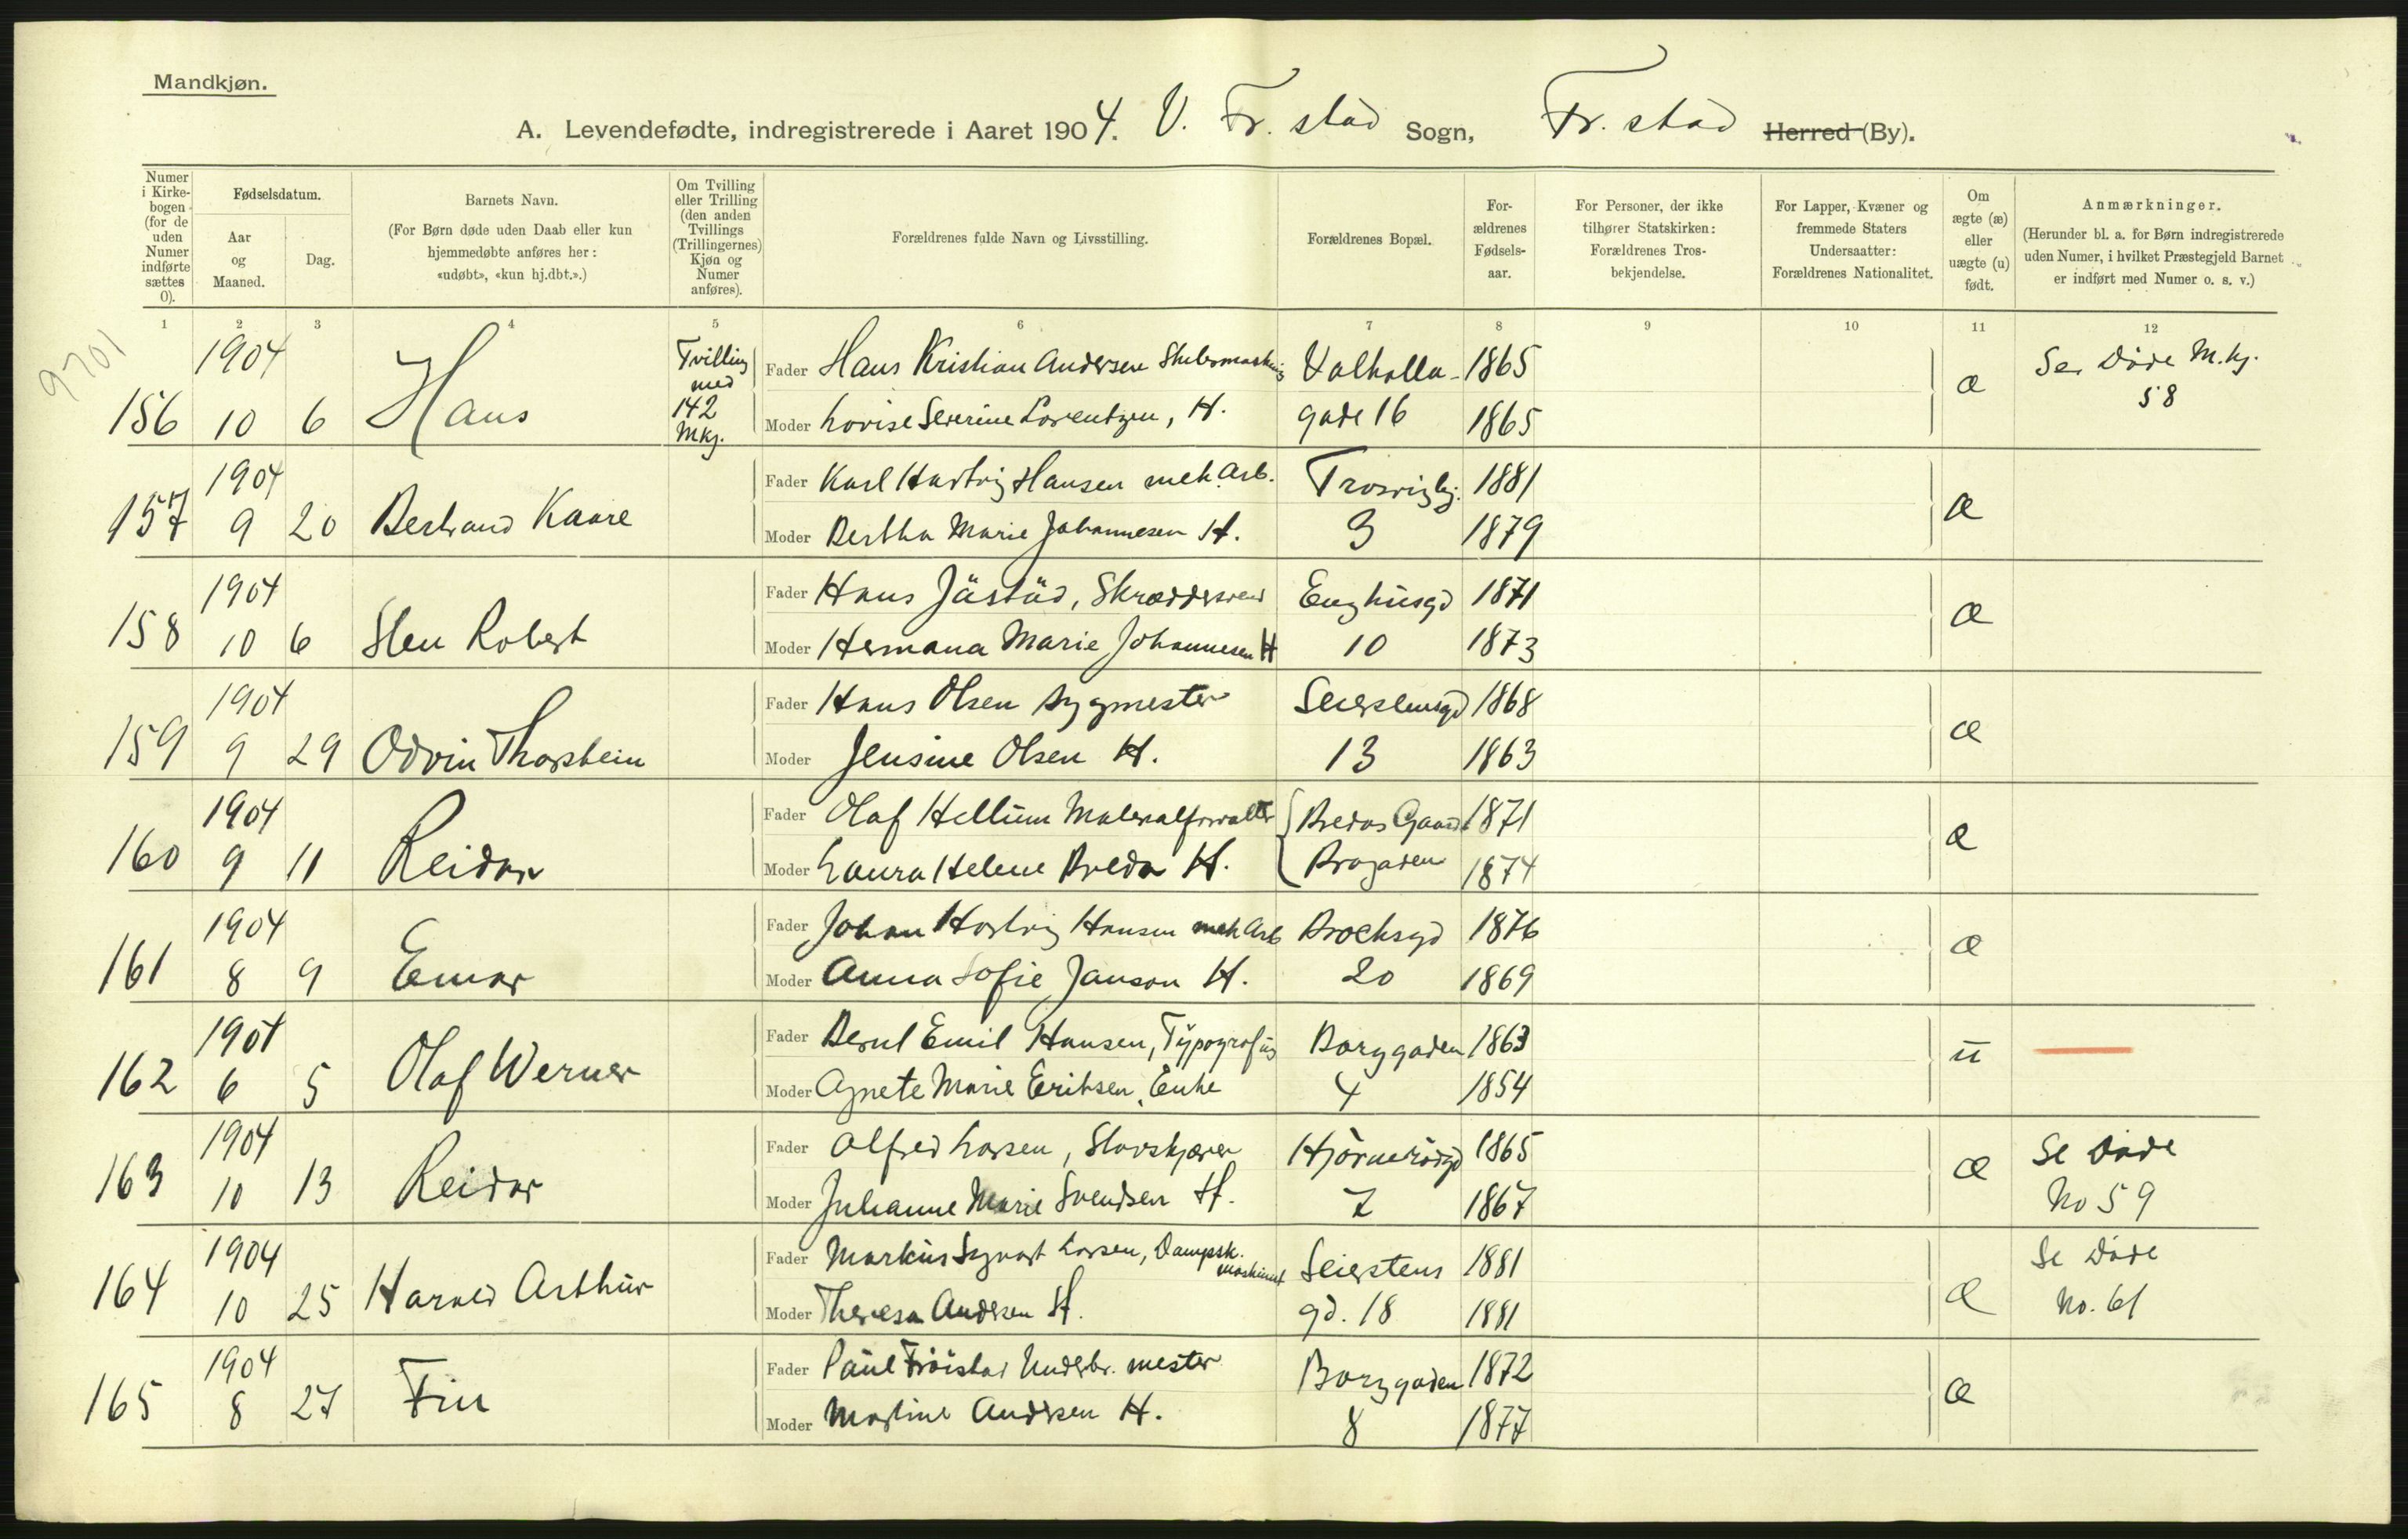 Mandkjøn.
A. Levendefødte, indregistrerede i Aaret 1904. V. Fr. stad Sogn, Fr. stad Herred (By).
Numer i Kirkebogen (for de uden Numer indførte sættes 0).
Fødselsdatum.
Aar og Maaned.
Dag.
Barnets Navn.
(For Børn døde uden Daab eller kun hjemmedøbte anføres her: «udøbt», «kun hj.dbt.».)
Om Tvilling eller Trilling (den anden Tvillings (Trillingernes) Kjøn og Numer anføres).
Forældrenes fulde Navn og Livsstilling.
Forældrenes Bopæl.
For-ældrenes Fødsels-aar.
For Personer, der ikke tilhører Statskirken: Forældrenes Tros-bekjendelse.
For Lapper, Kvæner og fremmede Staters Undersaatter: Forældrenes Nationalitet.
Om ægte (æ) eller uægte (u) født.
Anmærkninger.
(Herunder bl. a. for Børn indregistrerede uden Numer, i hvilket Præstegjeld Barnet er indført med Numer o. s. v.)
1 2 3 4 5 6 7 8 9 10 11 12
9701
1904 Tvilling Fader Hans Kristian Andersen Valholla- 1865 Se Døde M.kj.
156 10 6 Hans med 142 Mkj. Moder Lovise Severine Lorentzen, H. gade 16 1865 æ 58
1904 Fader Karl Hartvig Hansen mek. Arb. Trosvigbj. 1881
157 9 20 Bertrand Kaare Moder Bertha Marie Johannesen H. 3 1879 æ
1904 Fader Hans Jästäd, Skræddersvend Enghusgd 1871
158 10 6 Sten Robert Moder Hermana Marie Johannesen H 10 1873 æ
1904 Fader Hans Olsen Bygmester Seierstensgd 1868
159 9 29 Odvin Thorstein Moder Jensine Olsen H. 13 1863 æ
1904 Fader Olaf Hellum Materialforvalter Bredas Gaard 1871
160 9 11 Reidar Moder Laura Helene Breda H. Brogaden 1874 æ
1904 Fader Johan Hartvig Hansen mek Arb Brocksgd 1876
161 8 9 Einar Moder Anna Sofie Janson H. 20 1869 æ
1904 Fader Bernt Emil Hansen, Typograf Borggaden 1863
162 6 5 Olaf Werner Moder Agnete Marie Eriksen, Enke 4 1854 u
1904 Fader Alfred Larsen, Stavskjærer 1865 Se Døde
163 10 13 Reidar Moder Julianne Marie Svendsen H. 7 1867 æ No 59
1904 Fader Markus Sigvart Larsen, Dampsk. maskinist Seierstens 1881 Se Døde
164 10 25 Harald Arthur Moder Theresa Andersen H. gd. 18 1881 æ No. 61
1904 Fader Paul Frøistad Underbr. mester Borggaden 1872
165 8 27 Fin Moder Martine Andersen H. 8 1877 æ